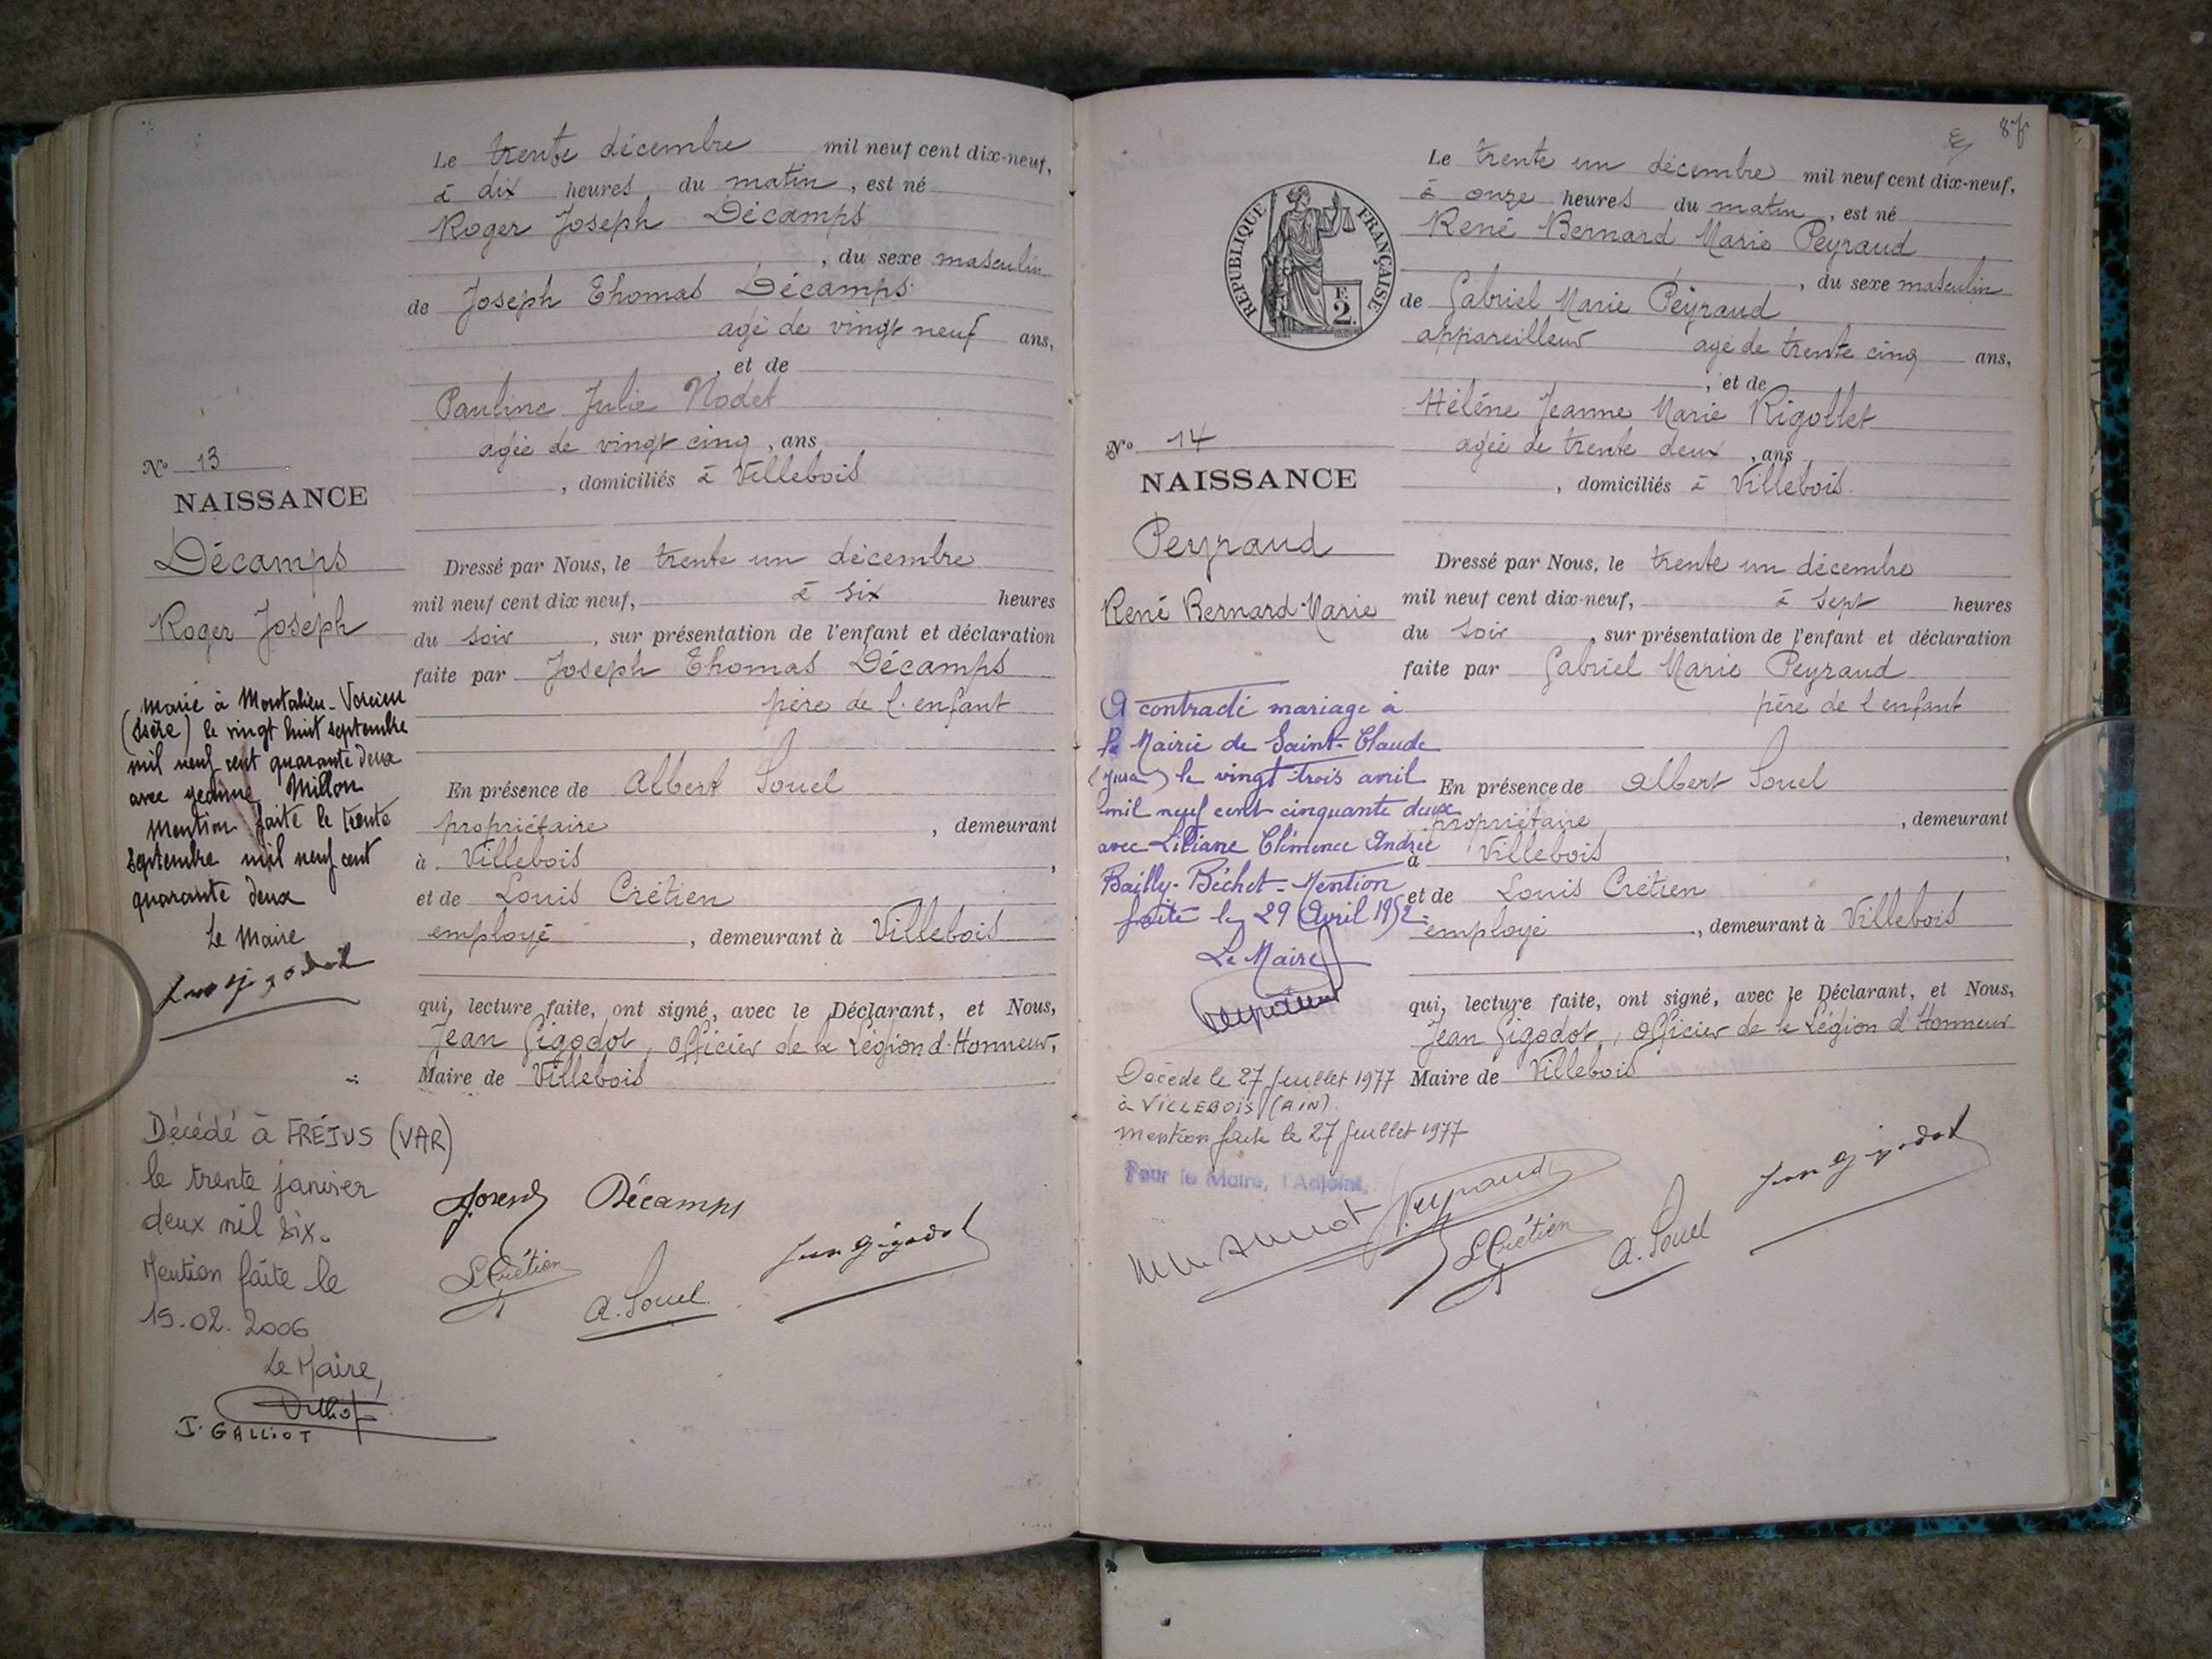 Le trente décembre mil neuf cent dix-neuf,
à dix heures du matin, est né
Roger Joseph Décamps
, du sexe masculin
de Joseph Thomas Décamps
agé de vingt neuf ans,
, et de
Pauline Julie Nodet
agée de vingt cinq, ans
, domiciliés à Villebois
No 13
NAISSANCE
Décamps
Roger Joseph
Dressé par Nous, le trente un décembre
mil neuf cent dix neuf, à six heures
du soir, sur présentation de l'enfant et déclaration
faite par Joseph Thomas Décamps
père de l'enfant
En présence de Albert Souel
propriétaire, demeurant
à Villebois,
et de Louis Crétien
employé, demeurant à Villebois
qui, lecture faite, ont signé, avec le Déclarant, et Nous,
Jean Gigodot, officier de la Légion d'Honneur,
Maire de Villebois
Marié à Montalieu-Vercieu
(Isère) le vingt huit septembre
mil neuf cent quarante deux
avec Jeanne Millon
Mention faite le trente
septembre mil neuf cent
quarante deux
Le Maire
Jean Gigodot
Décédé à FRÉJUS (VAR)
le trente janvier
deux mil six.
Mention faite le
15.02.2006
Le Maire,
J. GALLIOT
Joseph Décamps
L Crétien
A. Souel
Jean Gigodot
87
Le trente un décembre mil neuf cent dix-neuf,
à onze heures du matin, est né
René Bernard Marie Peyraud
, du sexe masculin
de Gabriel Marie Peyraud
appareilleur agé de trente cinq ans,
, et de
Hélène Jeanne Marie Rigollet
agée de trente deux, ans
, domiciliés à Villebois.
RÉPUBLIQUE FRANÇAISE
F.
2.
No 14
NAISSANCE
Peyraud
René Bernard-Marie
Dressé par Nous, le trente un décembre
mil neuf cent dix-neuf, à sept heures
du soir, sur présentation de l'enfant et déclaration
faite par Gabriel Marie Peyraud
père de l'enfant
En présence de Albert Souel
propriétaire, demeurant
à Villebois,
et de Louis Crétien
employé, demeurant à Villebois
qui, lecture faite, ont signé, avec le Déclarant, et Nous,
Jean Gigodot, officier de la Légion d'Honneur
Maire de Villebois
A contracté mariage à
la Mairie de Saint-Claude
(Jura) le vingt trois avril
mil neuf cent cinquante deux
avec Liliane Clémence Andrée
Bailly-Béchet - Mention
faite le 29 Avril 1952.
Le Maire
Décédé le 27 Juillet 1977
à VILLEBOIS (AIN).
mention faite le 27 Juillet 1977
Pour le Maire, l'Adjoint,
Peyraud
L Crétien
A. Souel
Jean Gigodot